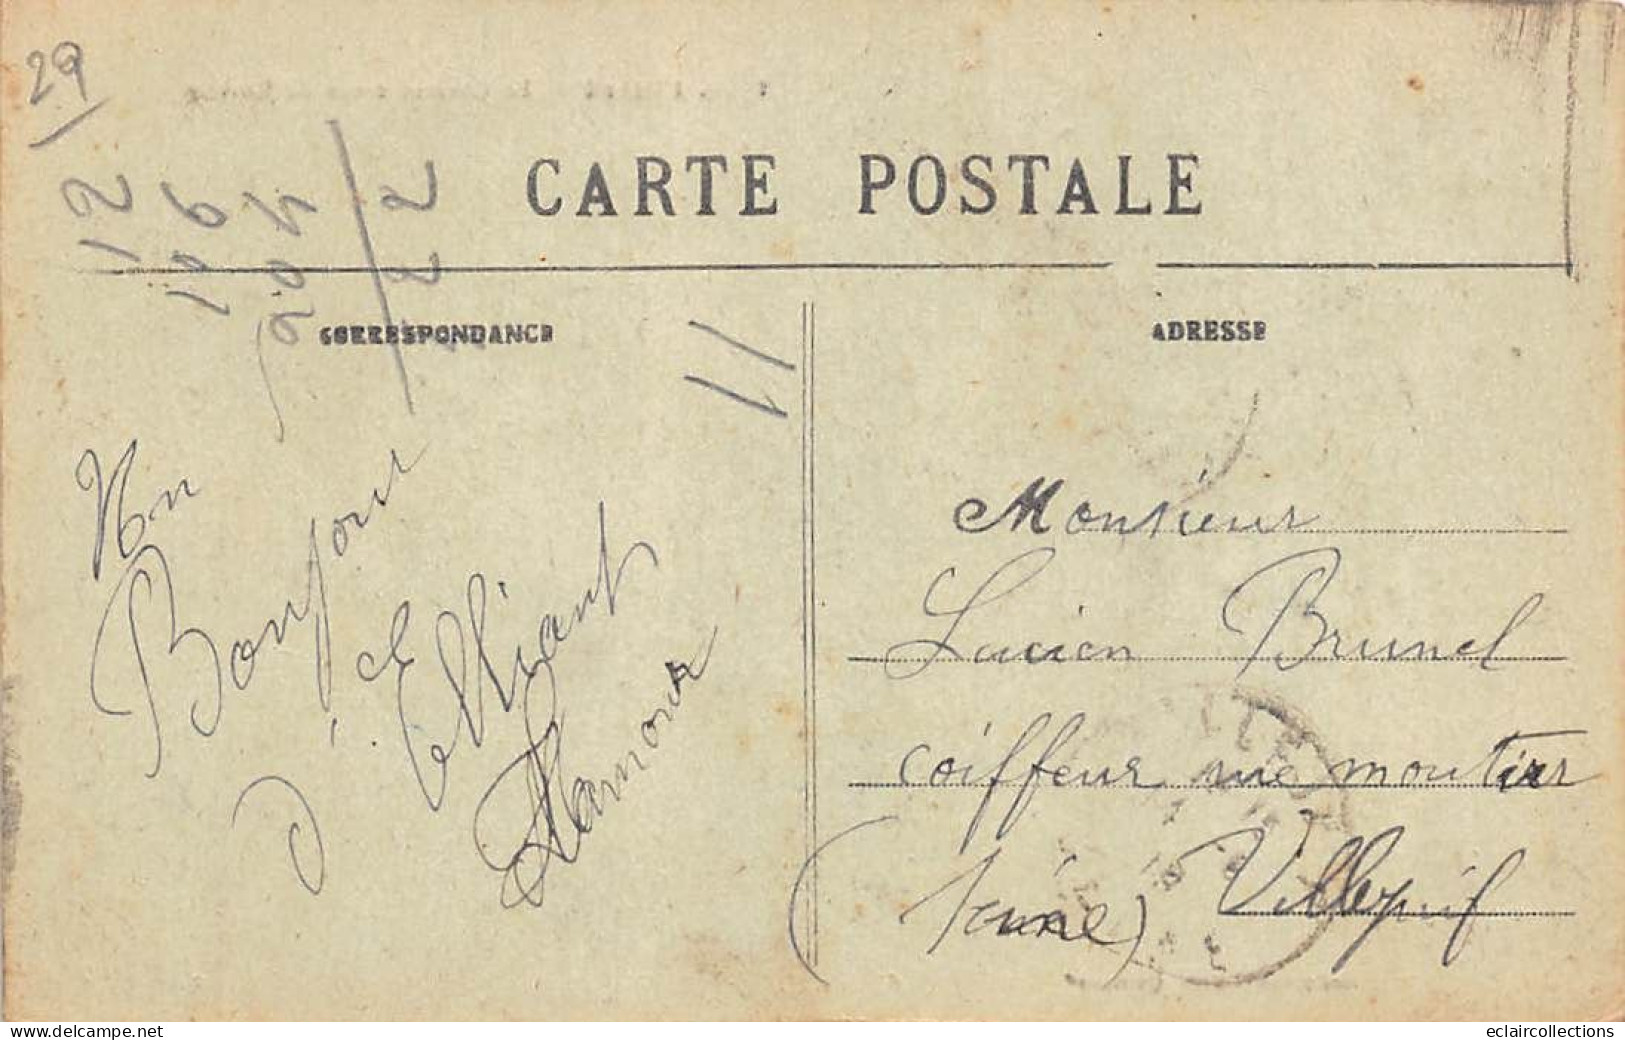 29
CARTE POSTALE
CORRESPONDANCE
ADRESSE
11
Un
Bonjour
d'Elliant
Monsieur
Lucien Brunel
coiffeur rue moutier
Villejuif
(Seine)
www.delcampe.net
eclaircollections